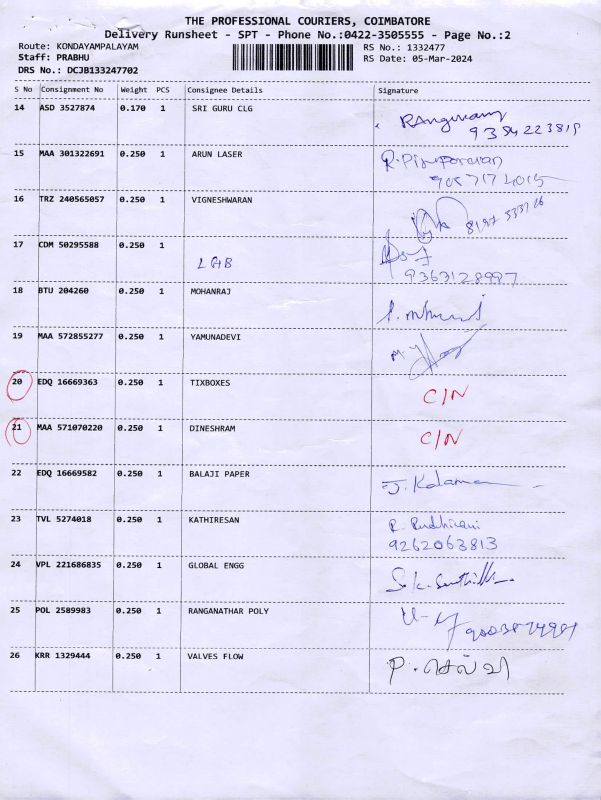 THE PROFESSIONAL COURIERS, COIMBATORE
Delivery Runsheet - SPT - Phone No.:0422-3505555 - Page No.:2
Route: KONDAYAMPALAYAM RS No.: 1332477
Staff: PRABHU RS Date: 05-Mar-2024
DRS No.: DCJB133247702
S No Consignment No Weight PCS Consignee Details Signature
14 ASD 3527874 0.170 1 SRI GURU CLG
9384223819
15 MAA 301322691 0.250 1 ARUN LASER
16 TRZ 240565057 0.250 1 VIGNESHWARAN
17 CDM 50295588 0.250 1
LGB
9363128997
18 BTU 204260 0.250 1 MOHANRAJ
19 MAA 572855277 0.250 1 YAMUNADEVI
20 EDQ 16669363 0.250 1 TIXBOXES
C/N
21 MAA 571070220 0.250 1 DINESHRAM
C/N
22 EDQ 16669582 0.250 1 BALAJI PAPER
23 TVL 5274018 0.250 1 KATHIRESAN
9262063813
24 VPL 221686835 0.250 1 GLOBAL ENGG
25 POL 2589983 0.250 1 RANGANATHAR POLY
26 KRR 1329444 0.250 1 VALVES FLOW
P. செல்வி